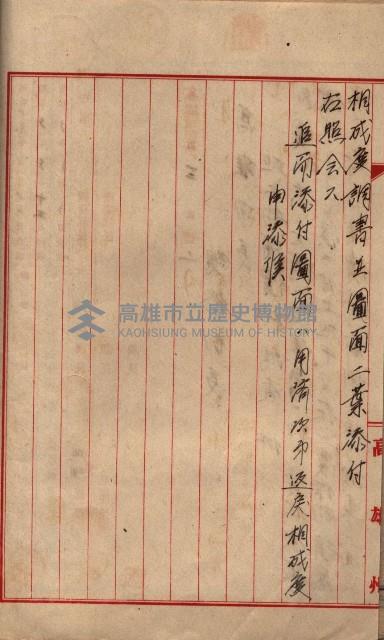 相成度調書並圖面二葉添付
右照会ス
追而添付圖面ハ用濟次第返戻相成度
申添候
高雄州
高雄市立歷史博物館
KAOHSIUNG MUSEUM OF HISTORY